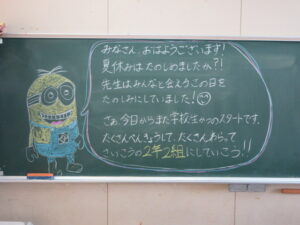 みなさん、おはようございます！
夏休みはたのしめましたか？！
先生はみんなと会えるこの日を
たのしみにしていました！
さぁ、今日からまた学校生かつのスタートです。
たくさんべんきょうして、たくさんあそって
さいこうの2年2組にしていこう!!